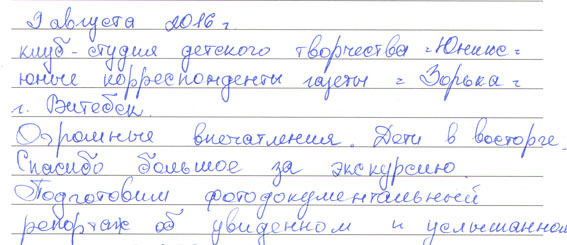 9 августа 2016 г
клуб-студия детского творчества "Юникс"
юные корреспонденты газеты "Зорька"
г. Витебск.
Огромные впечатления. Дети в восторге.
Спасибо большое за экскурсию.
Подготовим фотодокументальный
репортаж об увиденном и услышанном